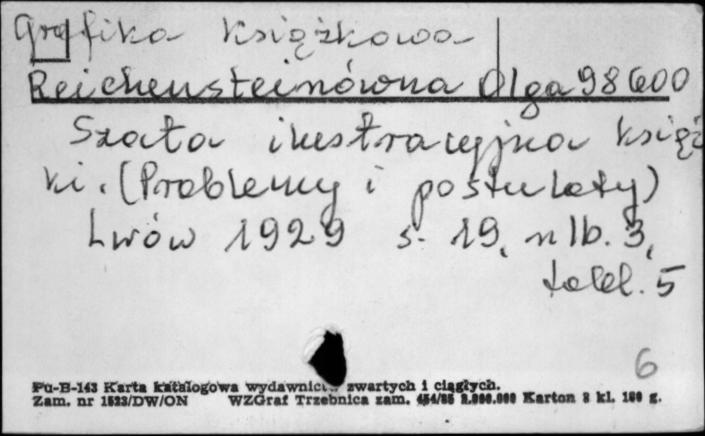 Grafika książkowa
Reichensteinówna Olga 98600
Szata ilustracyjna książ
ki. (Problemy i postulaty)
Lwów 1929 s. 19, nlb. 3,
tabl. 5
6
Pu-B-143 Karta katalogowa wydawnictw zwartych i ciągłych.
Zam. nr 1523/DW/ON WZGraf Trzebnica zam. 454/85 2.000.000 Karton 3 kl. 180 g.